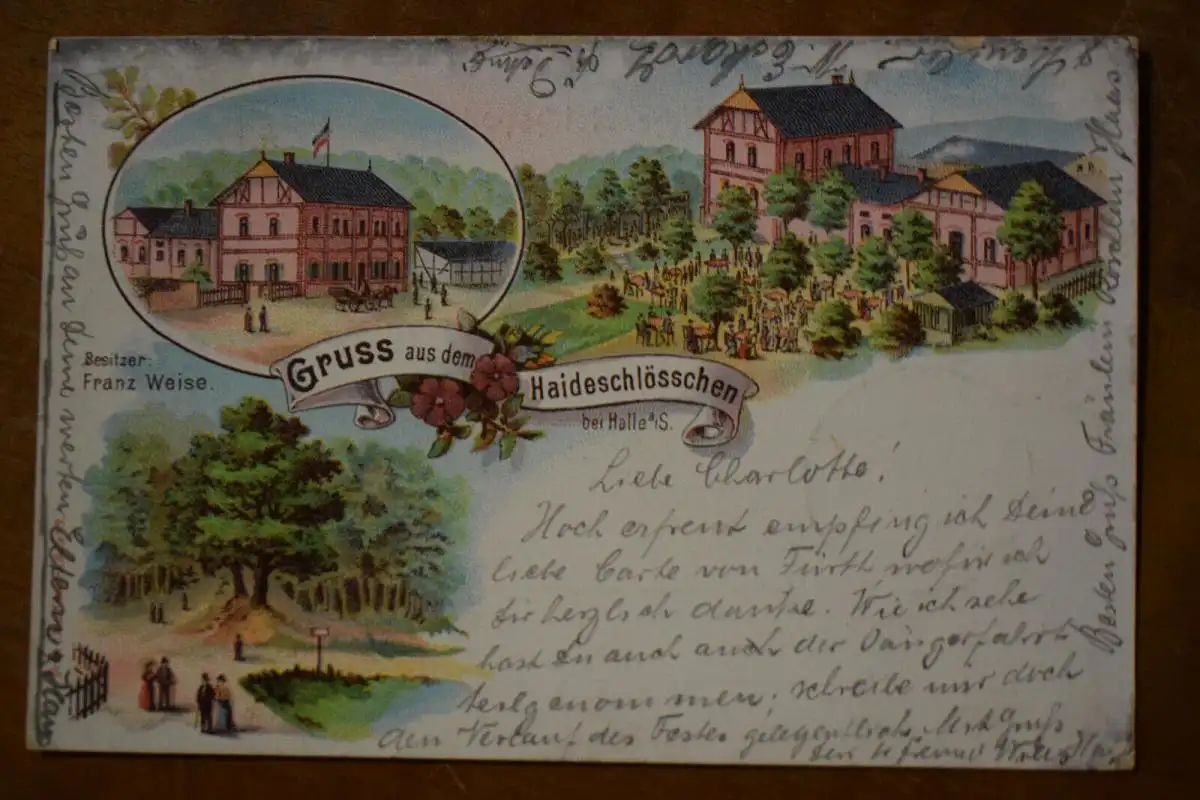 Besitzer:
Franz Weise.
Gruss aus dem
Haideschlösschen
bei Halle a/S.
Liebe Charlotte!
Hoch erfreut empfing ich Deine
liebe Carte von Fürth wofür ich
dir herzlich danke. Wie ich sehe
hast Du auch auch der Sängerfahrt
teilgenommen; schreibe mir doch
den Verlauf des Festes gelegentlich. Mit Gruß
dein freund
Besten Gruß an deine werten Eltern
Besten Gruß Fräulein Haas